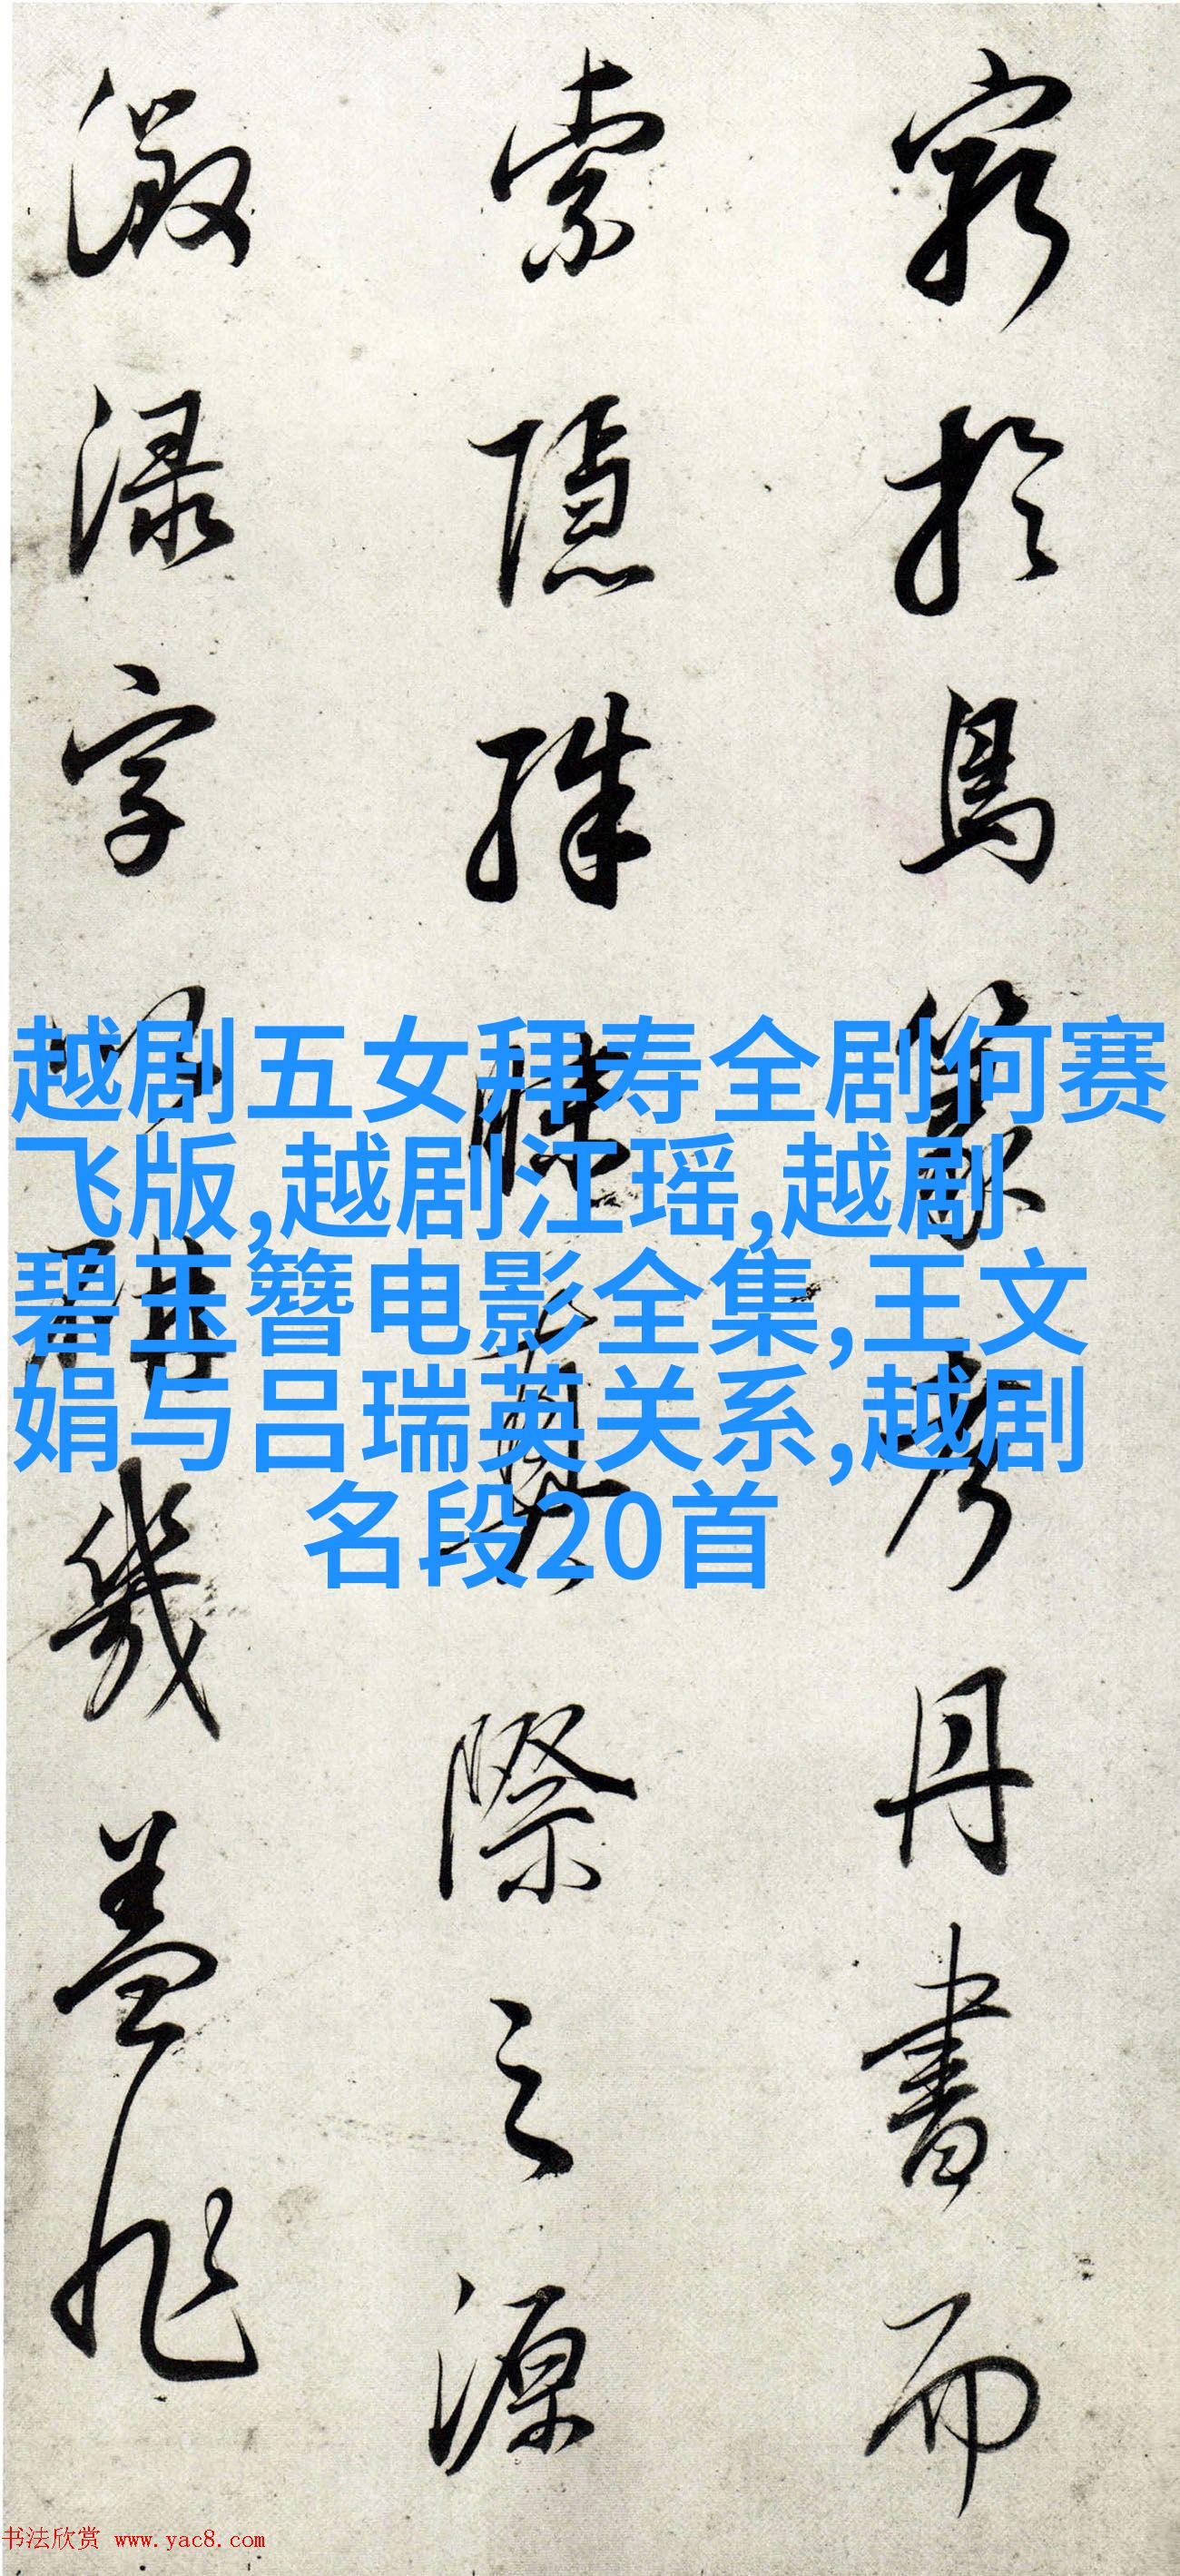 窮於鳥篆考丹書而
索隱殊昧真際之源
渌字幾盖非
越剧五女拜寿全剧何赛
飞版,越剧江瑶,越剧
碧玉簪电影全集,王文
娟与吕瑞英关系,越剧
名段20首
书法欣赏 www.yac8.com